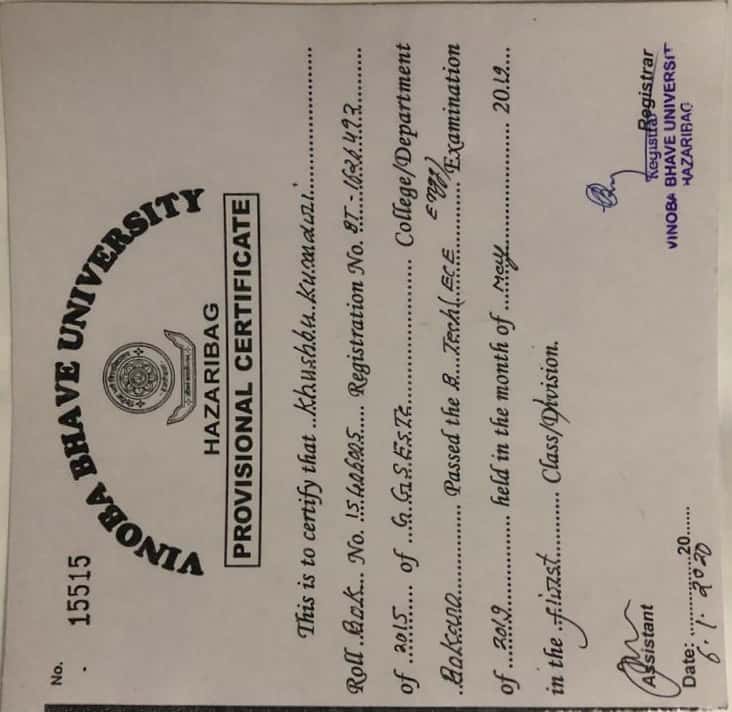 No. 15515
VINOBA BHAVE UNIVERSITY
HAZARIBAG
PROVISIONAL CERTIFICATE
This is to certify that ..Khushbu Kumari..........
Roll ..Bok... No. ............ Registration No. BT-1626493.........
of ..2015.... of ..G.G.S.E.S.T.C.................. College/Department
..Bokaro............. Passed the B...Tech(.ECE............ Examination
Engg)
of ...2019............... held in the month of ...May..................... 2019...
in the ..First........... Class/Division.
Assistant
Registrar
Registrar
VINOBA BHAVE UNIVERSIT
HAZARIBAG
Date: ................20......
6.1.2020